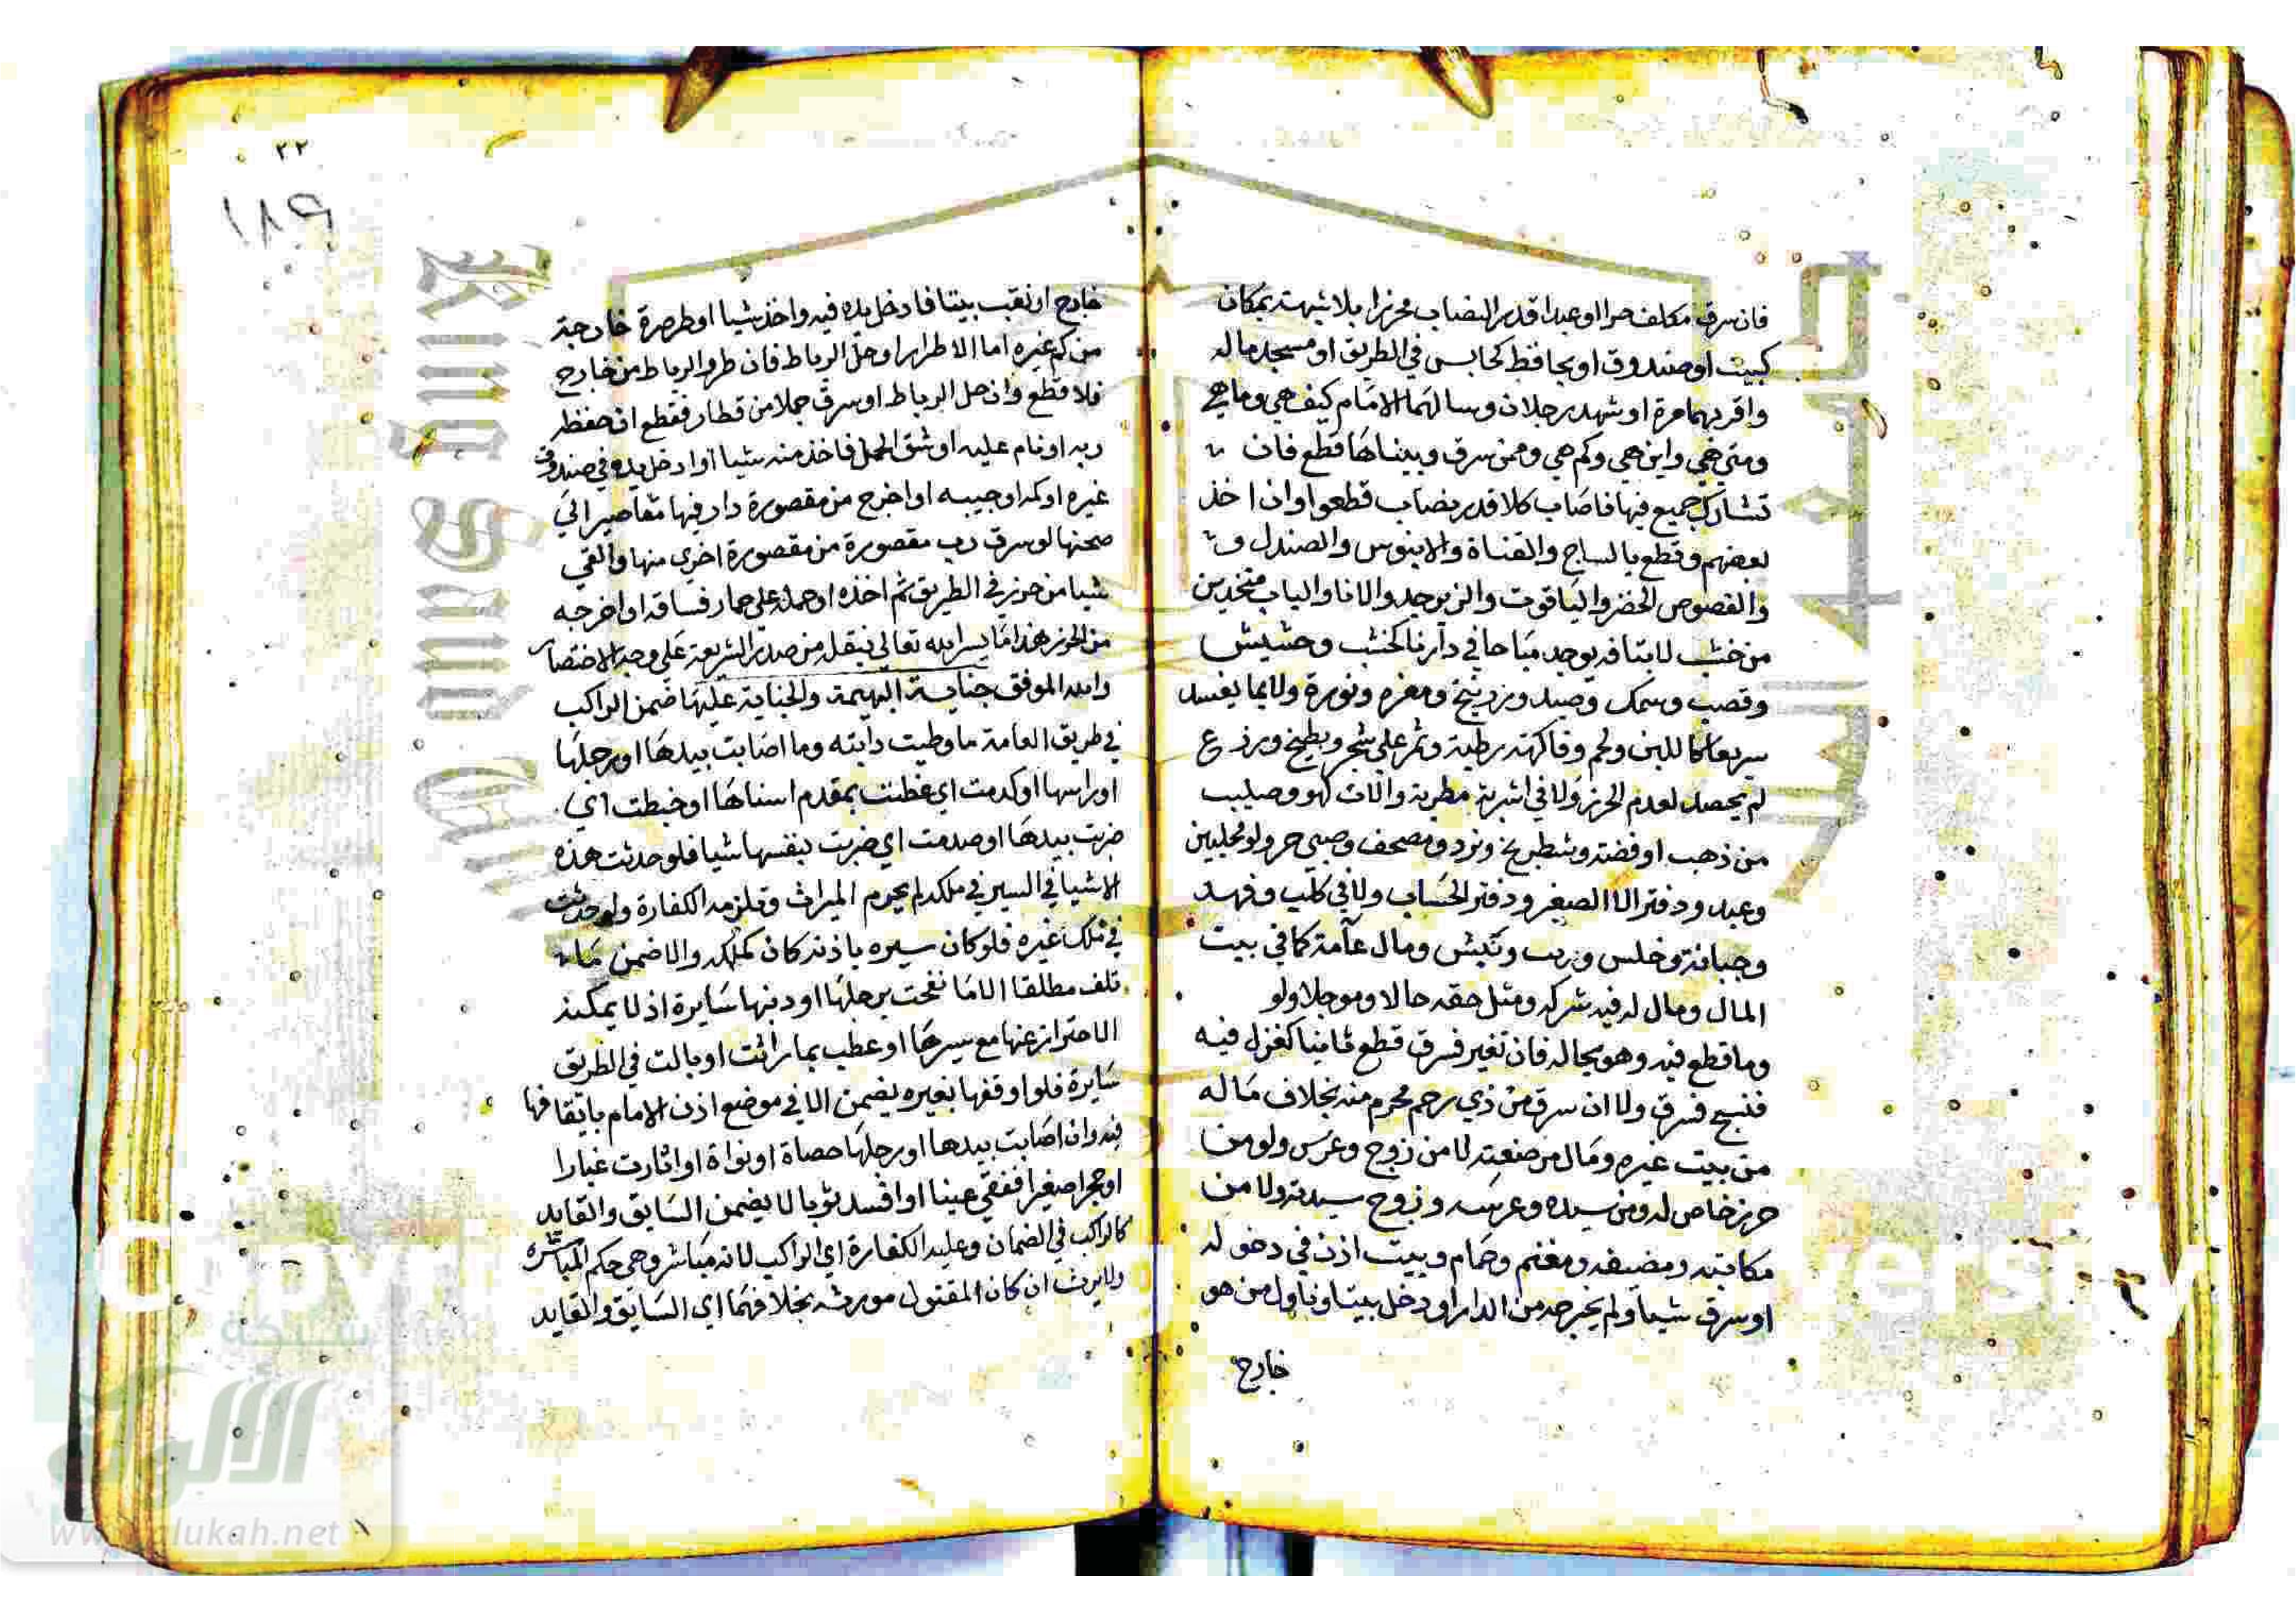 فان سرق مكلف حرا او عبدا قدر النصاب محرزا بلا شبهة بمكان
كبيت او صندوق او بحافظ كجالس في الطريق او مسجد ماله
واقر بها مرة او شهد رجلان وسالهما الامام كيف هي وما هي
ومتي هي واين هي وكم هي وممن سرق وبيناها قطع فان
تشارك جميع فيها فاصاب كلا قدر نصاب قطعوا وان اخذ
بعضهم وقطع بالساج والقناة والابنوس والصندل و
والفصوص الخضر والياقوت والزبرجد والانا والباب متخذين
من خشب لا بتافه يوجد مباحا في دارنا كخشب وحشيش
وقصب وسمك وصيد وزرنيخ ومغرة ونورة ولا بما يفسد
سريعا كاللبن ولحم وفاكهة رطبة وثمر علي شجر وبطيخ وزرع
لم يحصد لعدم الحرز ولا في اشربة مطربة والات لهو وصليب
من ذهب او فضة وشطرنج ونرد ومصحف وصبي حر ولو محليين
وعبد ودفتر الا الصغير ودفتر الحساب ولا في كلب وفهد
وخيانة وخلس ونهب ونبش ومال عامة كما في بيت
المال ومال له فيه شركة ومثل حقه حالا وموجلا ولو
وما قطع فيه وهو بحاله فان تغير فسرق قطع ثانيا كغزل فيه
فنسج فسرق ولا ان سرق من ذي رحم محرم منه بخلاف ماله
من بيت غيره ومال مرضعته لا من زوج وعرس ولو من
حرز خاص له ومن سيده وعرسه وزوج سيدته ولا من
مكاتبه ومضيفه ومغنم وحمام وبيت اذن في دخوله
او سرق شيا ولم يخرجه من الدار او دخل بيتا وناول من هو
خارج
٢٢
١٨٩
خارج او نقب بيتا فادخل يده فيه واخذ شيا او طر صرة خارجة
من كم غيره اما الاطرار او حل الرباط فان طر والرباط من خارج
فلا قطع وان حل الرباط او سرق جملا من قطار فقطع ان حفظه
ربه او نام عليه او شق الحمل فاخذ منه شيا او ادخل يده في صندوق
غيره او كمه او جيبه او اخرج من مقصورة دار فيها مقاصير الي
صحنها لو سرق رب مقصورة من مقصورة اخري منها والقي
شيا من حرز في الطريق ثم اخذه او حمله علي حمار فساقه او اخرجه
من الحرز هذا ما يسر الله تعالي بنقله من صدر الشريعة علي وجه الاختصار
والله الموفق جناية البهيمة والجناية عليها ضمن الراكب
في طريق العامة ما وطيت دابته وما اصابت بيدها او رجلها
او راسها او كدمت اي عظت بمقدم اسنانها او خبطت اي
ضربت بيدها او صدمت اي ضربت بنفسها شيا فلو حدثت هذه
الاشيا في السير في ملكه لم يحرم الميراث وتلزمه الكفارة ولو حدثت
في ملك غيره فلو كان سيره باذنه كان كملكه والا ضمن ما
تلف مطلقا الا ما نفحت برجلها او ذنبها سايرة اذ لا يمكنه
الاحتراز عنها مع سيرها او عطب بما راثت او بالت في الطريق
سايرة فلو اوقفها بغيره يضمن الا في موضع اذن الامام بايقافها
فيه وان اصابت بيدها او رجلها حصاة او نواة او اثارت غبارا
او حجرا صغيرا ففقي عينا او افسد ثوبا لا يضمن السايق والقايد
كالراكب في الضمان وعليه الكفارة اي الراكب لانه مباشر وهي حكم المباشرة
ولا يرث ان كان المقتول مورثه بخلافهما اي السايق والقايد
شبكة
الألوكة
www.alukah.net